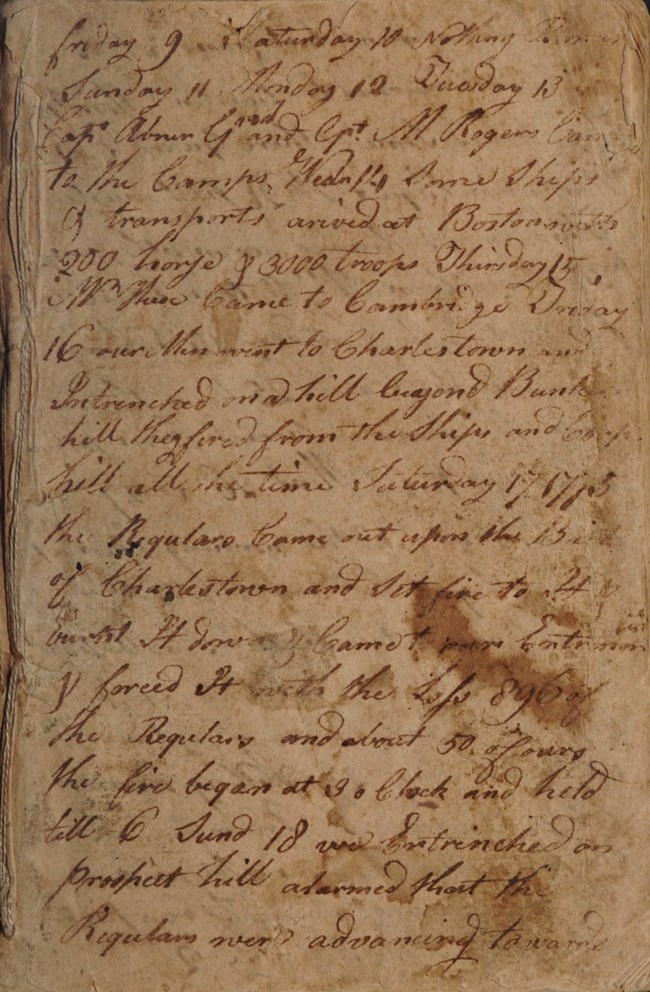 friday 9 Saturday 10 Nothing
Sunday 11 Monday 12 Tuesday 13
Capt Abner and Cpt. M Rogers Came
to the Camps. Some Ships
& transports arived at Boston with
200 horse & 3000 troops Thirsday 15
Mr Came to Cambridge Friday
16 our Men went to Charlestown and
Intrenched on a hill beyond Bunker
hill they fired from the Ships and
hill all the time Saturday 17 1775
the Regulars Came out upon the
of Charlestown and Set fire to It &
It down & Came t our
& forced It with the Loss 896 of
the Regulars and about 50 of ours
the fire began at 3 o Clock and held
till 6 Sund 18 we Entrinched on
Prospect hill alarmed that the
Regulars were advancing towards